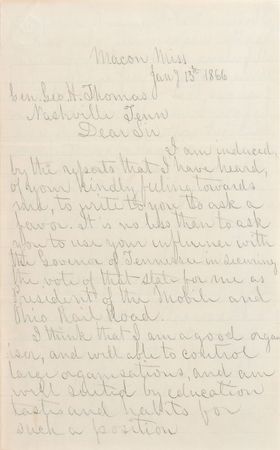 Macon, Miss
Jany 13th 1866
Gen. Geo. H. Thomas
Nashville Tenn
Dear Sir
I am induced,
by the reports that I have heard,
of your kindly feeling towards
me, to write to you to ask a
favor. It is no less then to ask
you to use your influence with
the Govenor of Tennessee in securing
the vote of that state for me as
President of the Mobile and
Ohio Rail Road.
I think that I am a good organ
iser, and well able to control
large organisations, and am
well suited by education
tastes and habits for
such a position